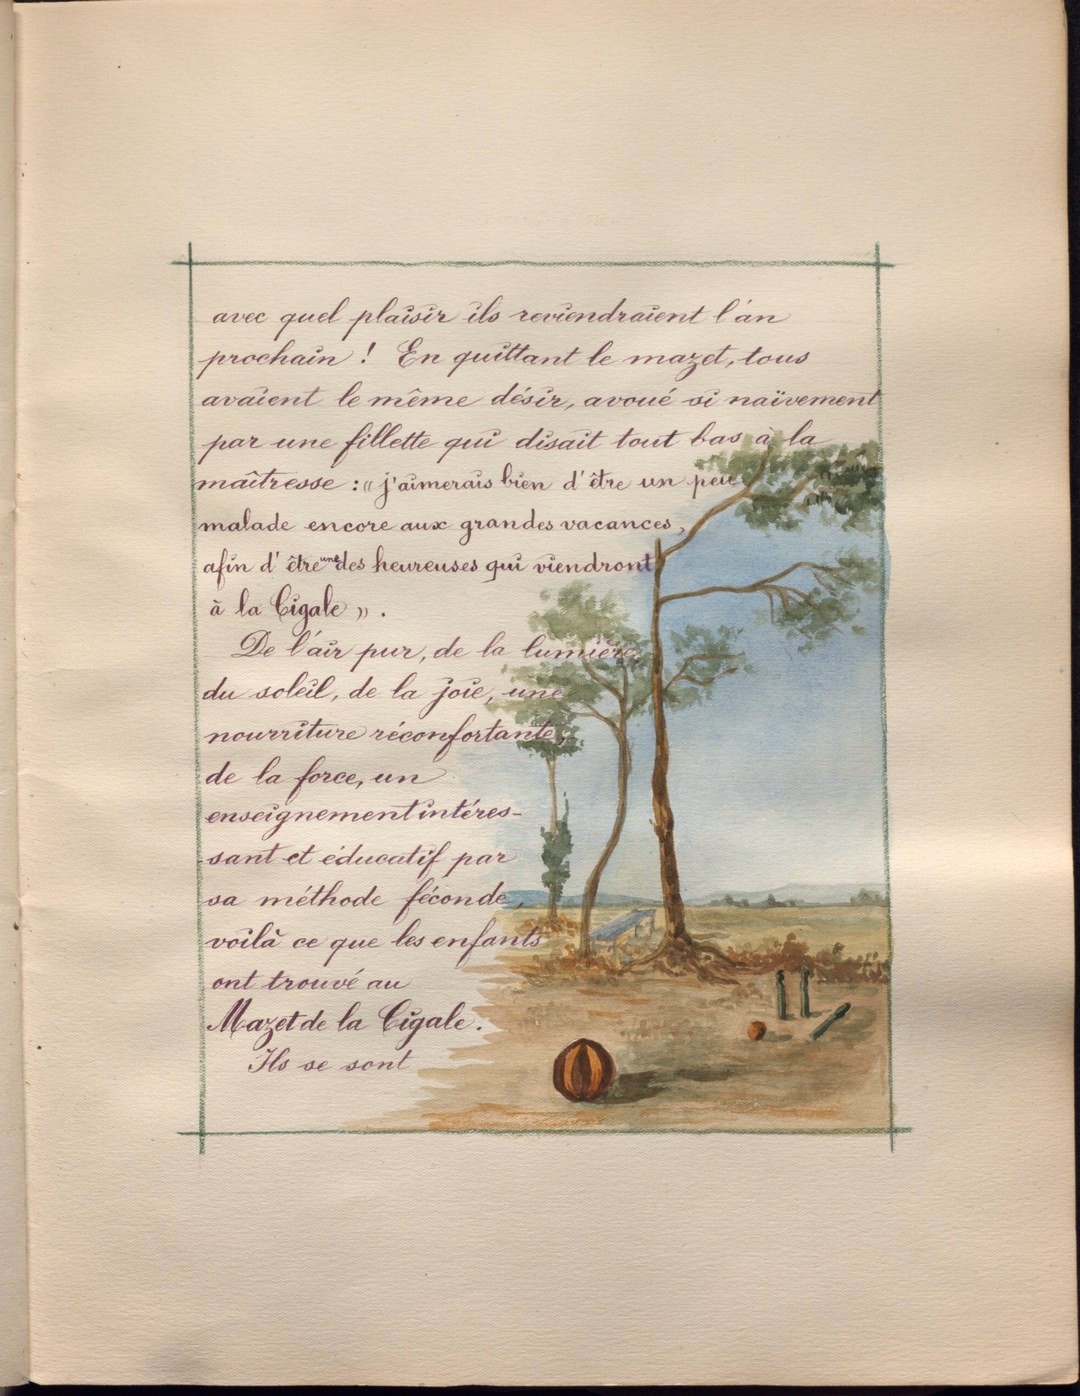 avec quel plaisir ils reviendraient l'an
prochain ! En quittant le mazet, tous
avaient le même désir, avoué si naïvement
par une fillette qui disait tout bas à la
maîtresse : « j'aimerais bien d'être un peu
malade encore aux grandes vacances,
afin d'être une des heureuses qui viendront
à la Cigale ».
De l'air pur, de la lumière,
du soleil, de la joie, une
nourriture réconfortante,
de la force, un
enseignement intéres-
sant et éducatif par
sa méthode féconde,
voilà ce que les enfants
ont trouvé au
Mazet de la Cigale.
Ils se sont